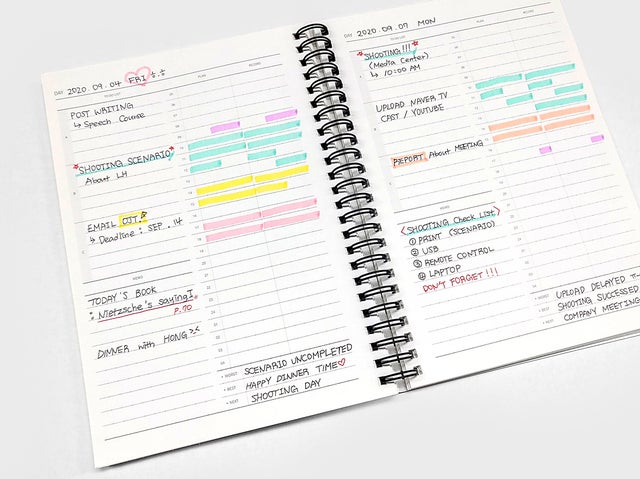 DAY 2020. 09. 04 FRI
TO DO LIST
PLAN
RECORD
POST WRITING
↳ Speech Course
*SHOOTING SCENARIO*
About LH
EMAIL OJT.
↳ Deadline : SEP. 14
MEMO
TODAY'S BOOK
: Nietzsche's saying I.
P.70
DINNER with HONG ><
• WORST SCENARIO UNCOMPLETED
• BEST HAPPY DINNER TIME♡
• NEXT SHOOTING DAY
DAY 2020. 09. 07 MON
TO DO LIST
PLAN
RECORD
*SHOOTING!!!*
(Media Center)
↳ 10:00 AM
UPLOAD NAVER TV
CAST / YOUTUBE
REPORT About MEETING
MEMO
<SHOOTING Check LIST>
① PRINT (SCENARIO)
② USB
③ REMOTE CONTROL
④ LAPTOP
DON'T FORGET!!!
• WORST UPLOAD DELAYED
• BEST SHOOTING SUCCESSED
• NEXT COMPANY MEETING